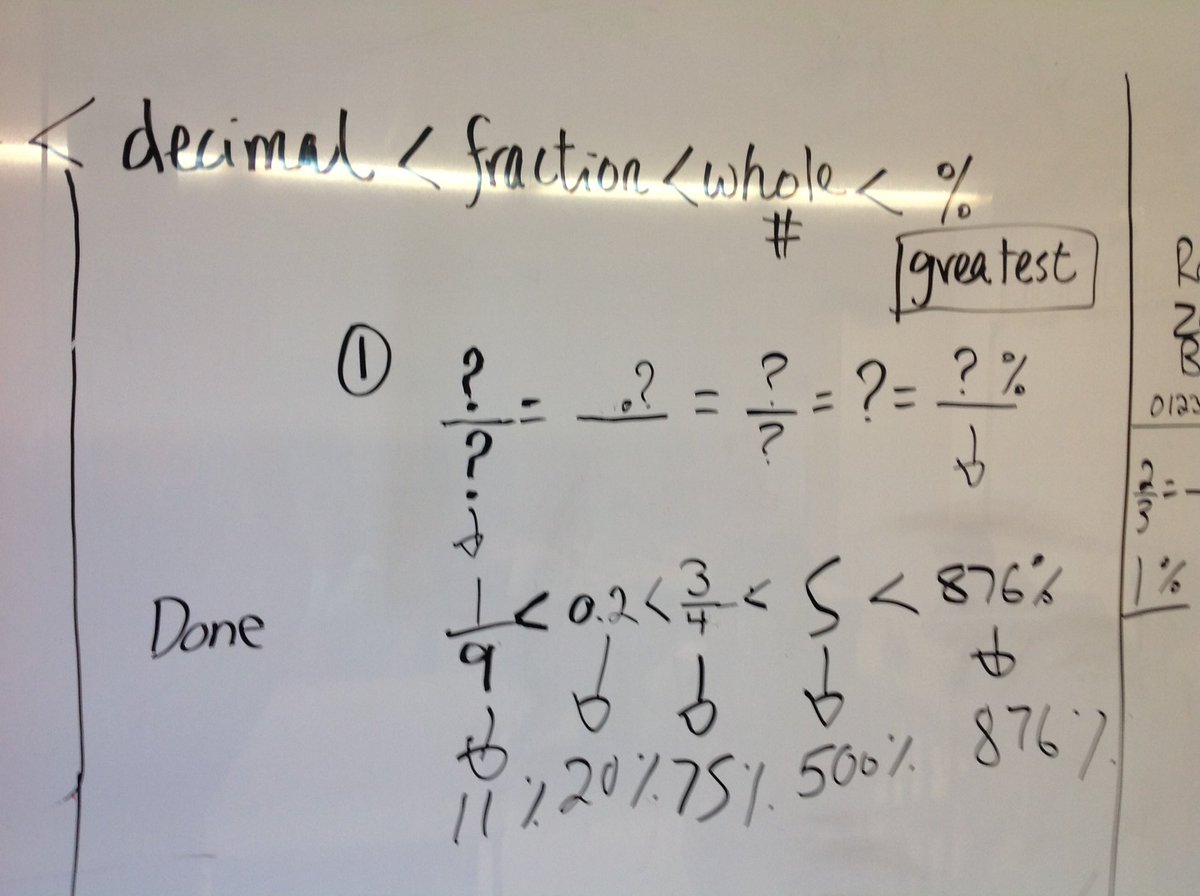 < decimal < fraction < whole < %
#
greatest
① ?/? = .? = ?/? = ? = ?%
Done 1/9 < 0.2 < 3/4 < 5 < 876%
11% 20% 75% 500% 876%
0123
2/3 =
1%